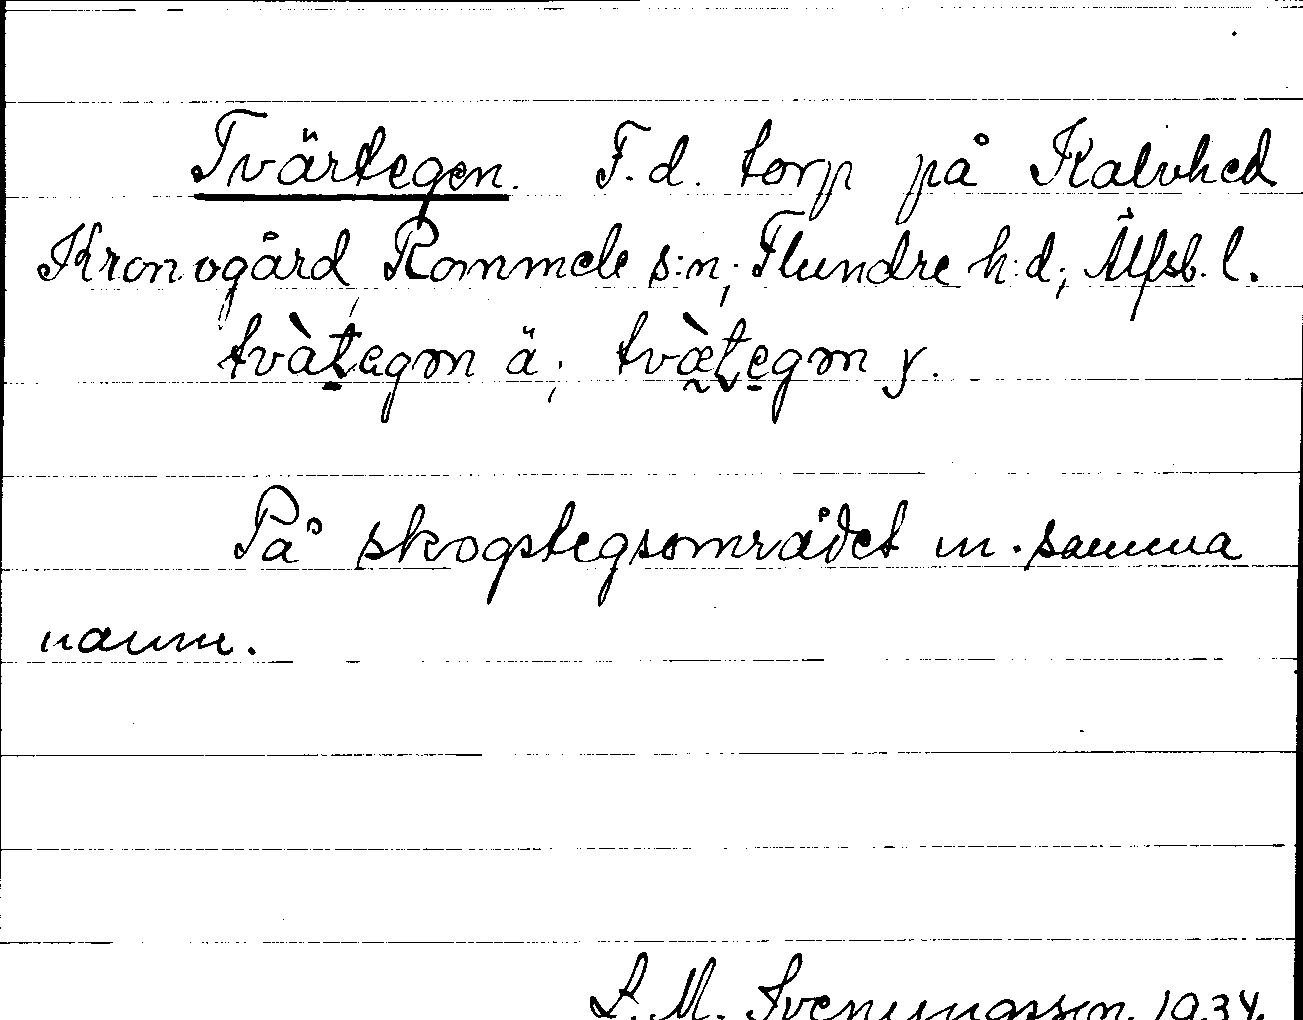 Tvärtegen. F.d. torp på Kalvhed
Kronogård, Rommele s:n; Flundre h:d; Älfsb. l.
tvàt̠egøn ä; tvæ̀t̠egøn y.
På skogstegsområdet m. samma
namn.
S. M. Svenungsson 1934.